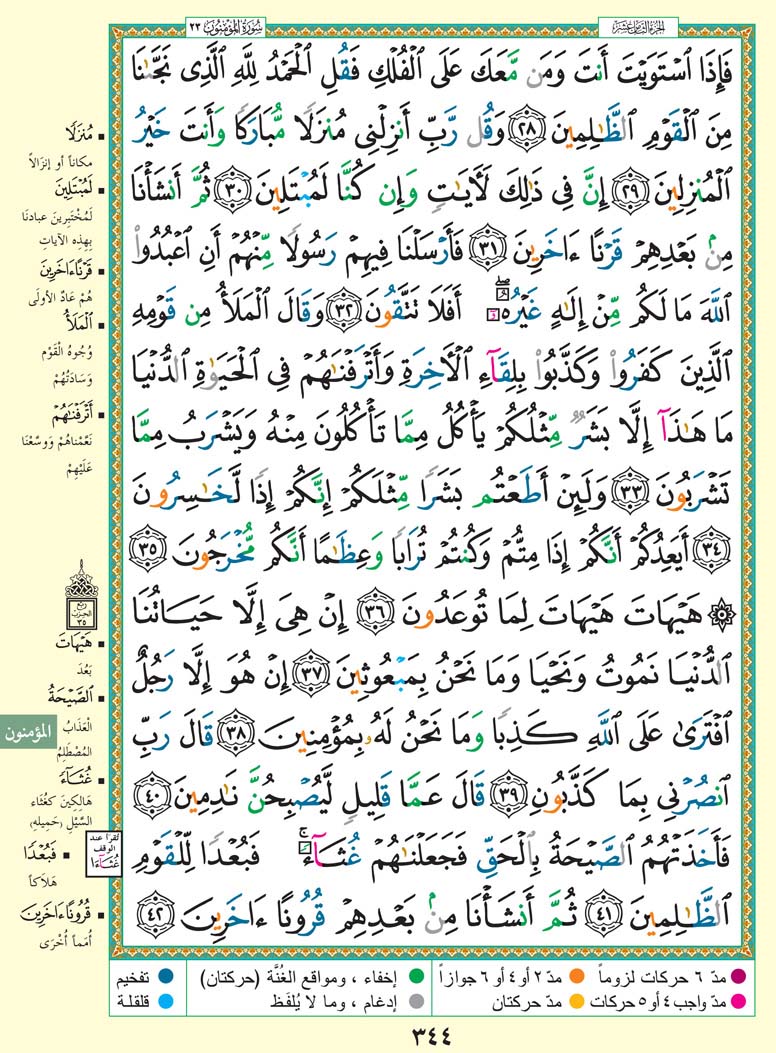 الجزء الثامن عشر
سُورَةُ المُؤْمِنُونَ ٢٣
فَإِذَا ٱسْتَوَيْتَ أَنتَ وَمَن مَّعَكَ عَلَى ٱلْفُلْكِ فَقُلِ ٱلْحَمْدُ لِلَّهِ ٱلَّذِى نَجَّىٰنَا
مِنَ ٱلْقَوْمِ ٱلظَّـٰلِمِينَ ٢٨ وَقُل رَّبِّ أَنزِلْنِى مُنزَلًا مُّبَارَكًا وَأَنتَ خَيْرُ
ٱلْمُنزِلِينَ ٢٩ إِنَّ فِى ذَٰلِكَ لَـَٔايَـٰتٍ وَإِن كُنَّا لَمُبْتَلِينَ ٣٠ ثُمَّ أَنشَأْنَا
مِنۢ بَعْدِهِمْ قَرْنًا ءَاخَرِينَ ٣١ فَأَرْسَلْنَا فِيهِمْ رَسُولًا مِّنْهُمْ أَنِ ٱعْبُدُوا۟
ٱللَّهَ مَا لَكُم مِّنْ إِلَـٰهٍ غَيْرُهُۥٓ أَفَلَا تَتَّقُونَ ٣٢ وَقَالَ ٱلْمَلَأُ مِن قَوْمِهِ
ٱلَّذِينَ كَفَرُوا۟ وَكَذَّبُوا۟ بِلِقَآءِ ٱلْـَٔاخِرَةِ وَأَتْرَفْنَـٰهُمْ فِى ٱلْحَيَوٰةِ ٱلدُّنْيَا
مَا هَـٰذَآ إِلَّا بَشَرٌ مِّثْلُكُمْ يَأْكُلُ مِمَّا تَأْكُلُونَ مِنْهُ وَيَشْرَبُ مِمَّا
تَشْرَبُونَ ٣٣ وَلَئِنْ أَطَعْتُم بَشَرًا مِّثْلَكُمْ إِنَّكُمْ إِذًا لَّخَـٰسِرُونَ
٣٤ أَيَعِدُكُمْ أَنَّكُمْ إِذَا مِتُّمْ وَكُنتُمْ تُرَابًا وَعِظَـٰمًا أَنَّكُم مُّخْرَجُونَ ٣٥
۞ هَيْهَاتَ هَيْهَاتَ لِمَا تُوعَدُونَ ٣٦ إِنْ هِىَ إِلَّا حَيَاتُنَا
ٱلدُّنْيَا نَمُوتُ وَنَحْيَا وَمَا نَحْنُ بِمَبْعُوثِينَ ٣٧ إِنْ هُوَ إِلَّا رَجُلٌ
ٱفْتَرَىٰ عَلَى ٱللَّهِ كَذِبًا وَمَا نَحْنُ لَهُۥ بِمُؤْمِنِينَ ٣٨ قَالَ رَبِّ
ٱنصُرْنِى بِمَا كَذَّبُونِ ٣٩ قَالَ عَمَّا قَلِيلٍ لَّيُصْبِحُنَّ نَـٰدِمِينَ ٤٠
فَأَخَذَتْهُمُ ٱلصَّيْحَةُ بِٱلْحَقِّ فَجَعَلْنَـٰهُمْ غُثَآءً ۚ فَبُعْدًا لِّلْقَوْمِ
ٱلظَّـٰلِمِينَ ٤١ ثُمَّ أَنشَأْنَا مِنۢ بَعْدِهِمْ قُرُونًا ءَاخَرِينَ ٤٢
مُنزَلًا
مكاناً أو إنزالاً
لَمُبْتَلِينَ
لَمُخْتَبِرينَ عبادنَا
بِهذه الآياتِ
قَرْنًا ءَاخَرِينَ
هُمْ عَادٌ الأولَى
ٱلْمَلَأُ
وُجُوهُ الْقَوْم
وَسَادَتُهُمْ
أَتْرَفْنَـٰهُمْ
نَعَّمْنَاهُمْ وَوَسَّعْنَا
عَلَيْهِمْ
ربع
الحزب
٣٥
هَيْهَاتَ
بَعُدَ
ٱلصَّيْحَةُ
الْعَذَابُ
المُصْطَلِمُ
المؤمنون
غُثَآءً
هَالِكِينَ كَغُثَاءِ
السَّيْلِ (حَمِيلِهِ)
تُقرأ عند
الوقف
غُثَآءَا
فَبُعْدًا
هَلَاكاً
قُرُونًا ءَاخَرِينَ
أُمَماً أُخْرَى
مدّ ٦ حركات لزوماً
مدّ ٢ أو ٤ أو ٦ جوازاً
إخفاء ، ومواقع الغُنَّة (حركتان)
تفخيم
مدّ واجب ٤ أو ٥ حركات
مدّ حركتان
إدغام ، وما لا يُلفَظ
قلقلة
٣٤٤